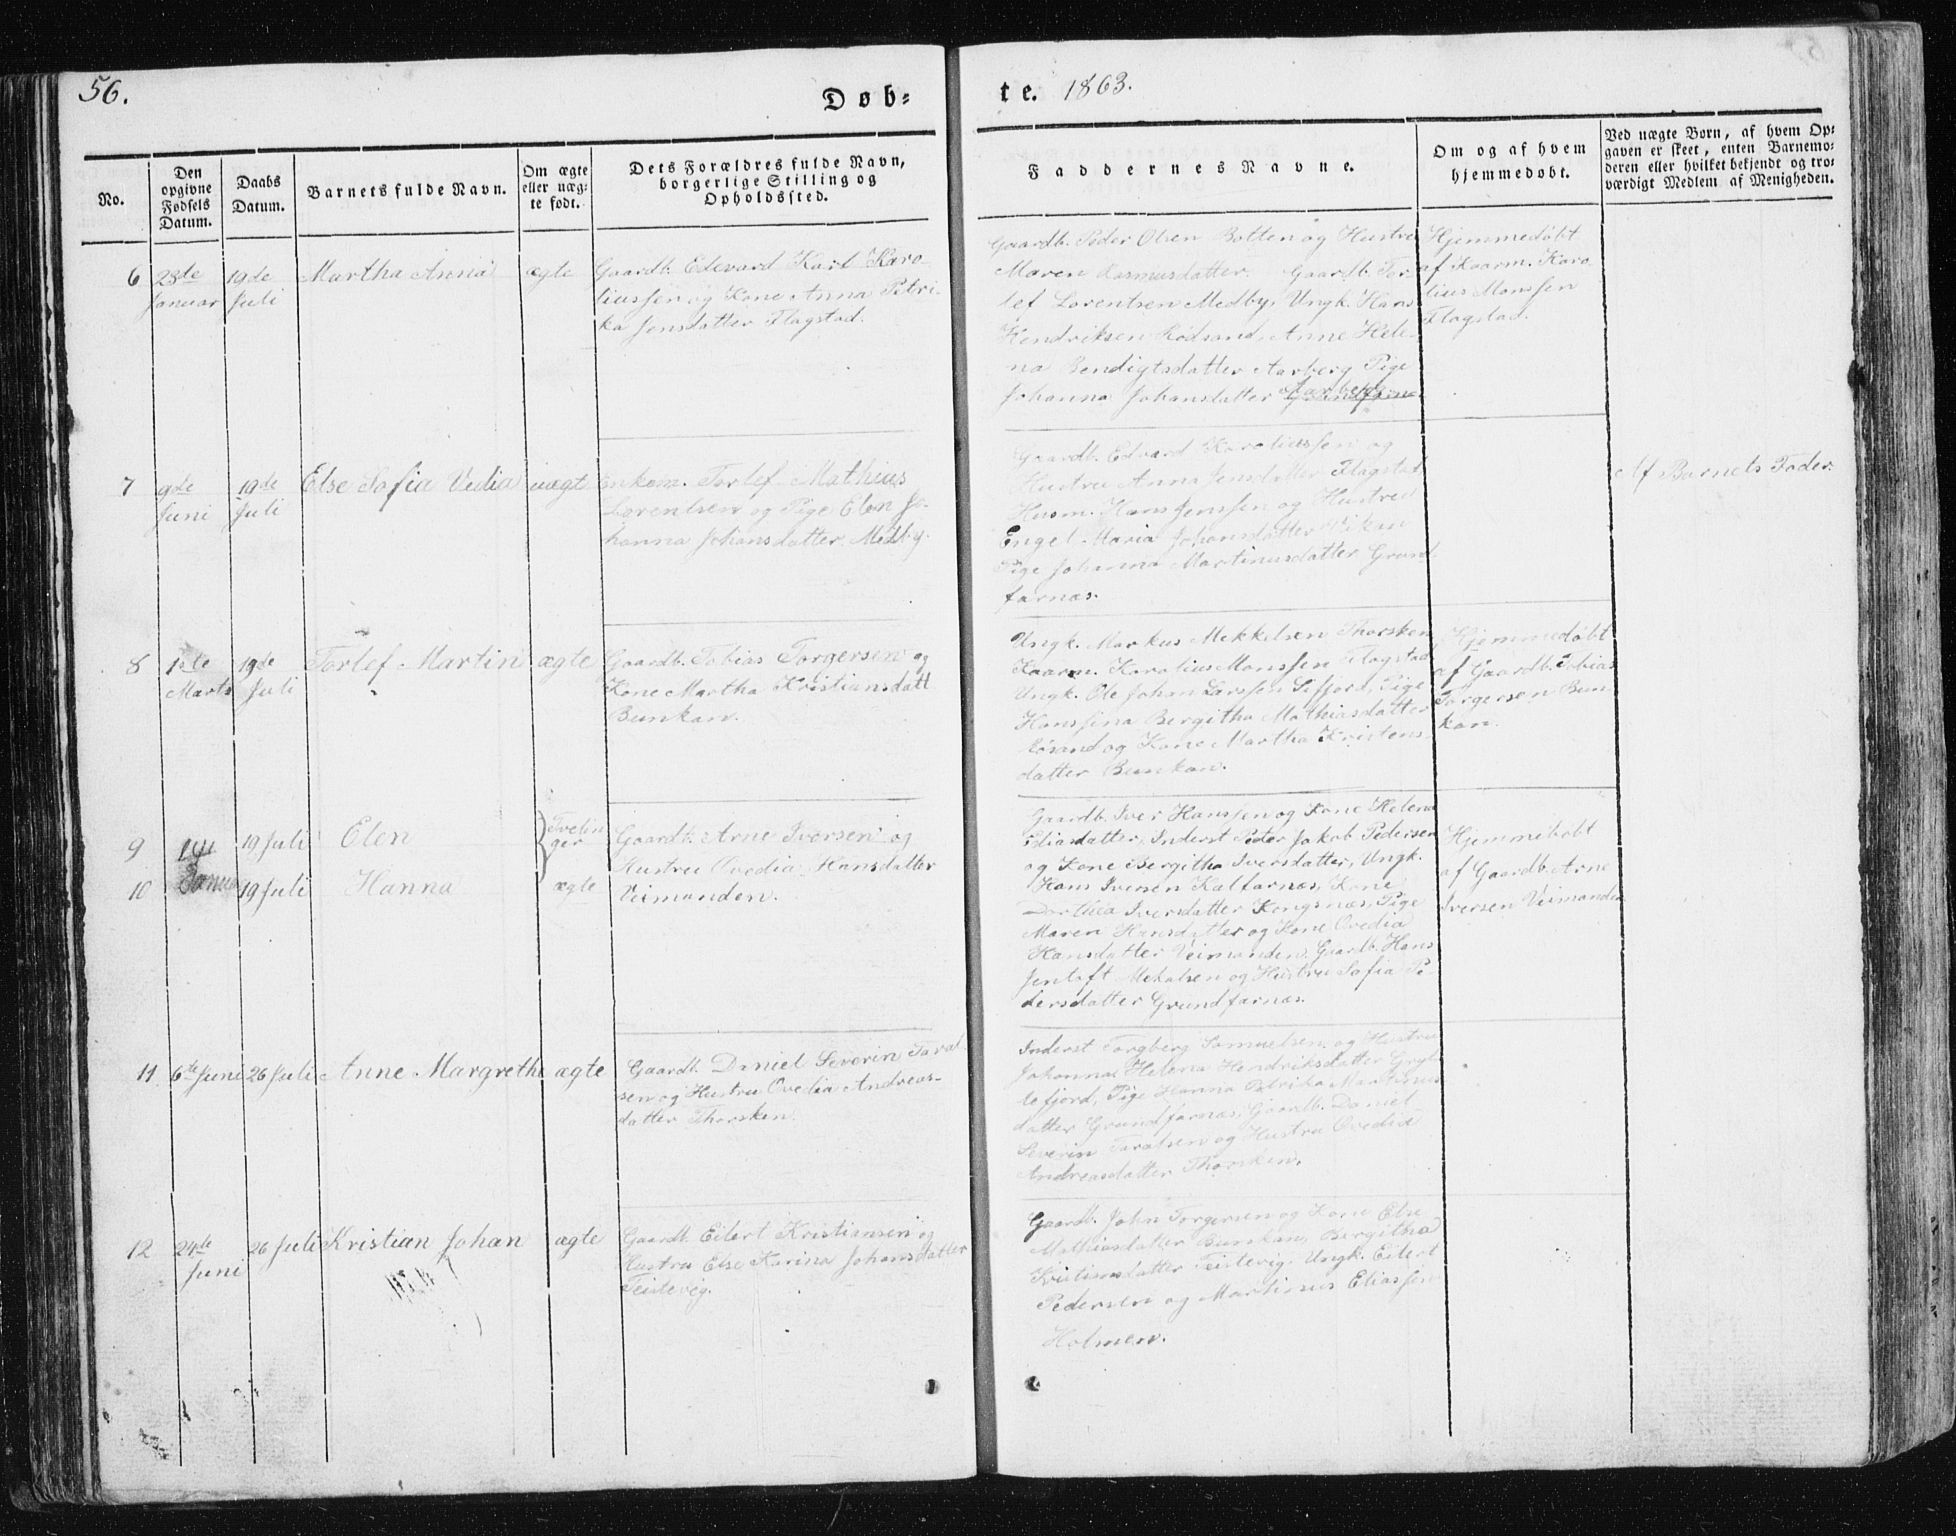 56.
Døb=
te. 1863.
No.
Den
opgivne
Fødsels
Datum.
Daabs
Datum.
Barnets fulde Navn.
Om ægte
eller uæg=
te født.
Dets Forældres fulde Navn,
borgerlige Stilling og
Opholdssted.
Faddernes Navne.
Om og af hvem
hjemmedøbt.
Ved uægte Børn, af hvem Op=
gaven er skeet, enten Barnemo=
deren eller hvilket bekjendt og tro=
værdigt Medlem af Menigheden.
6
28de
Januar
19de
Juli
Martha Anna
ægte
Gaardb. Edevard Karl Karo
liussen og Kone Anna Petri-
ka Jensdatter Flagstad.
Gaardb. Peder Olsen Botten og Hustru
Maren Rasmusdatter. Gaardb. Tor
lef Lorentsen Medby, Ungk. Hans
Hendriksen Rødsand, Anne Hele-
na Bendigtsdatter Aarberg Pige
Johanna Johansdatter Aarberg
Hjemmedøbt
af Kaarm. Karo
lius Monssen
Flagstad.
7
9de
Juni
19de
Juli
Else Sofia Vedia
uægt
Enkem. Torlef Mathius
Lorentsen og Pige Elen Jo-
hanna Johansdatter, Medby.
Gaardb. Edvard Karoliussen og
Hustru Anna Jensdatter Flagstad
Husm. Hans Jenssen og Hustru
Engel Maria Johansdatter Vikan
Pige Johanna Martinusdatter Grund
farnæs.
Af Barnets Fader.
8
1ste
Marts
19de
Juli
Torlef Martin
ægte
Gaardb. Tobias Torgersen og
Kone Martha Kristiansdatt
Bunkan.
Ungk. Markus Mekkelsen Thorsken
Kaarm. Karolius Monssen Flagstad
Ungk. Ole Johan Larssen Sifjord, Pige
Hanssina Bergitha Mathiasdatter
Rösand og Kone Martha Kristens
datter Bunkan.
Hjemmedøbt
af Gaardb. Tobias
Torgersen Bun
kan.
9
10
Janua
19 Juli
19 Juli
Elen
Hanna
Tvelin
ger
ægte
Gaardb. Arne Iversen og
Hustru Ovedia Hansdatter
Veimanden.
Gaardb. Iver Hanssen og Kone Helena
Eliasdatter, Inderst Peder Jakob Pedersen
og Kone Bergitha Iversdatter, Ungk.
Hans Iversen Kalfarnæs, Kone
Dorthea Iversdatter Kongsnæs, Pige
Maren Hansdatter og Kone Ovedia
Hansdatter Veimanden, Gaardb. Hans
Jentoft Mekalsen og Hustru Sofia Pe
dersdatter Grundfarnæs.
Hjemmebøbt
af Gaardb. Arne
Iversen Veimanden
11
6te Juni
26 Juli
Anne Margrethe
ægte
Gaardb. Daniel Severin Taral
sen og Hustru Ovedia Andreas-
datter Thorsken.
Inderst Torgberg Samuelsen og Hustru
Johanna Helena Hendriksdatter Gryl
lefjord, Pige Hanna Petrika Martinus
datter Grundfarnæs, Gaardb. Daniel
Severin Taralsen og Hustru Ovedia
Andreasdatter Thorsken.
12
24de
Juni
26 Juli
Kristian Johan
ægte
Gaardb. Eilert Kristiansen og
Hustru Else Karina Johansdatter
Teistevig.
Gaardb. John Torgersen og Kone Else
Mathiasdatter Bunkan, Bergitha
Kristiansdatter Teistevig, Ungk. Eilert
Pedersen og Martinus Eliassen
Holmen.